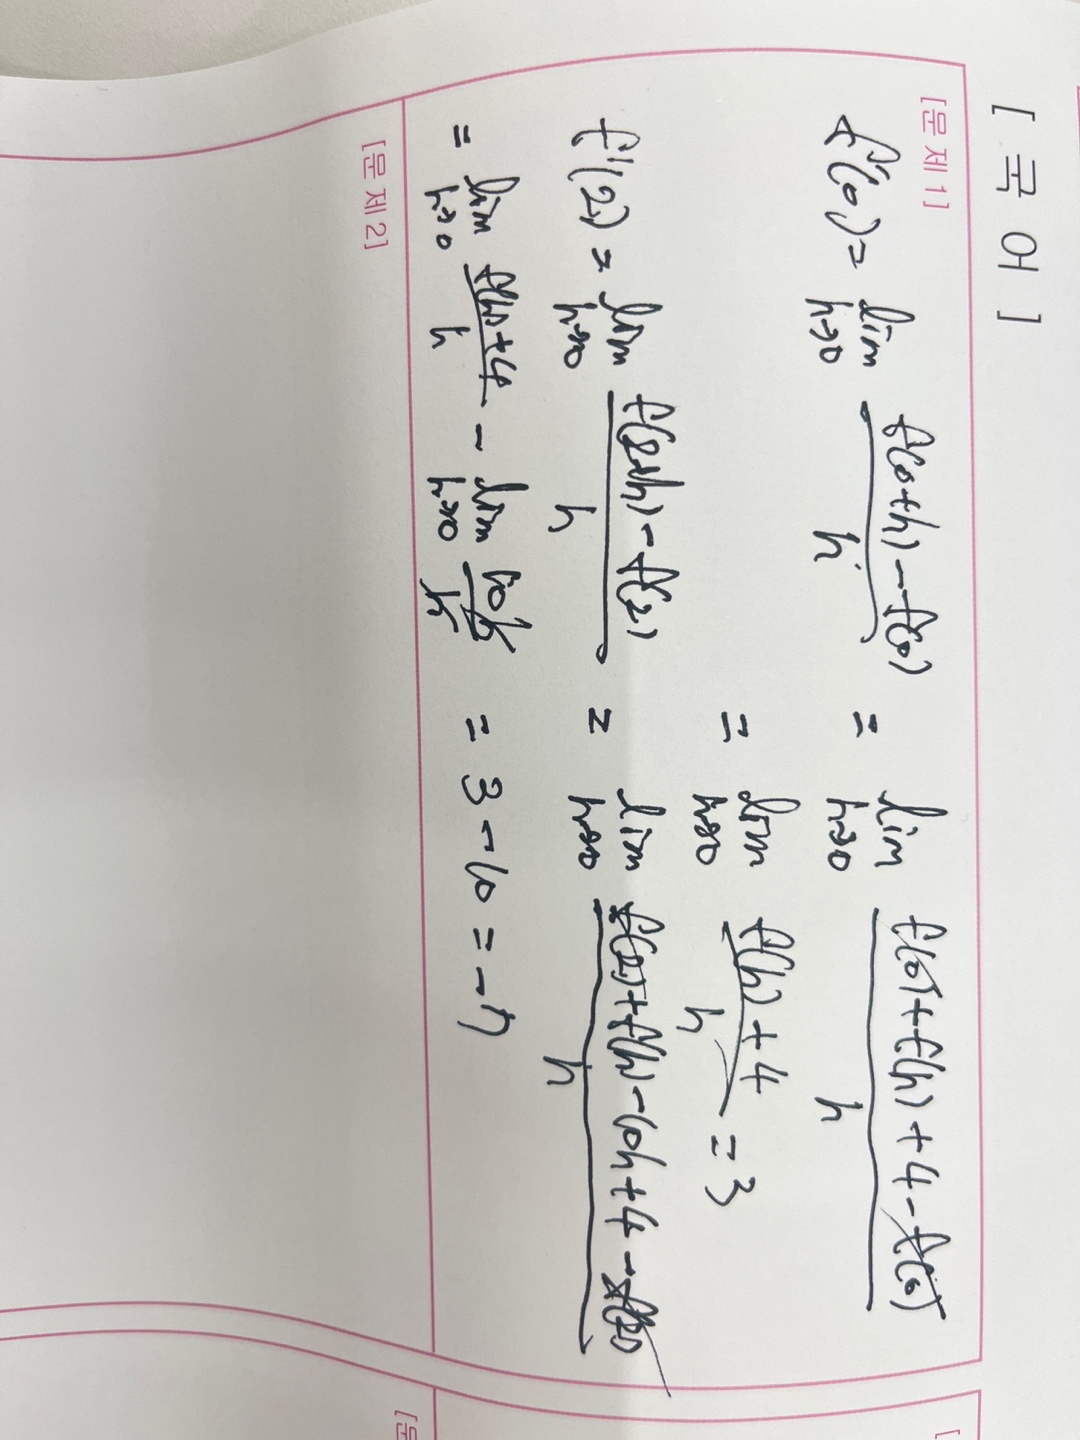 [ 국 어 ]
[문 제 1]
f'(0) = lim h→0 f(0+h)-f(0) / h = lim h→0 f(0)+f(h)+4-f(0) / h
= lim h→0 f(h)+4 / h = 3
f'(2) = lim h→0 f(2+h)-f(2) / h = lim h→0 f(2)+f(h)-10h+4-f(2) / h
= lim h→0 f(h)+4 / h - lim h→0 10h / h = 3-10 = -7
[문 제 2]